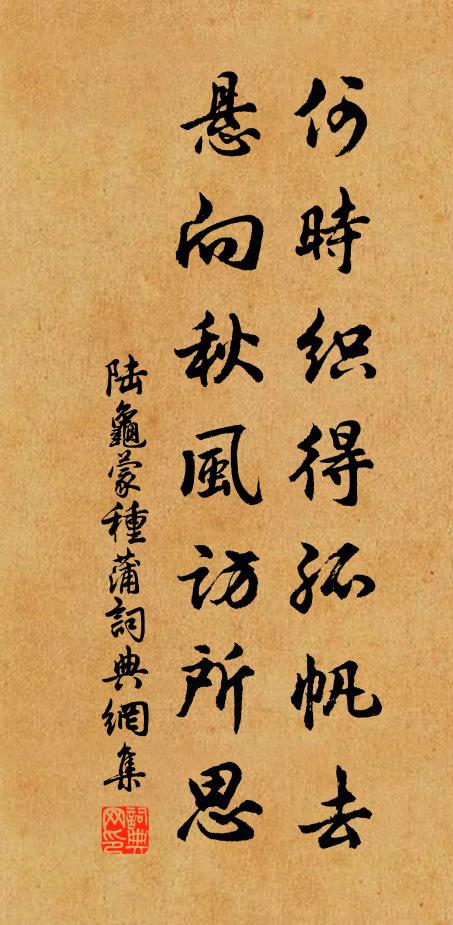 何時織得孤帆去
懸向秋風訪所思
陆龜蒙種蒲詞典網集
詞典网印